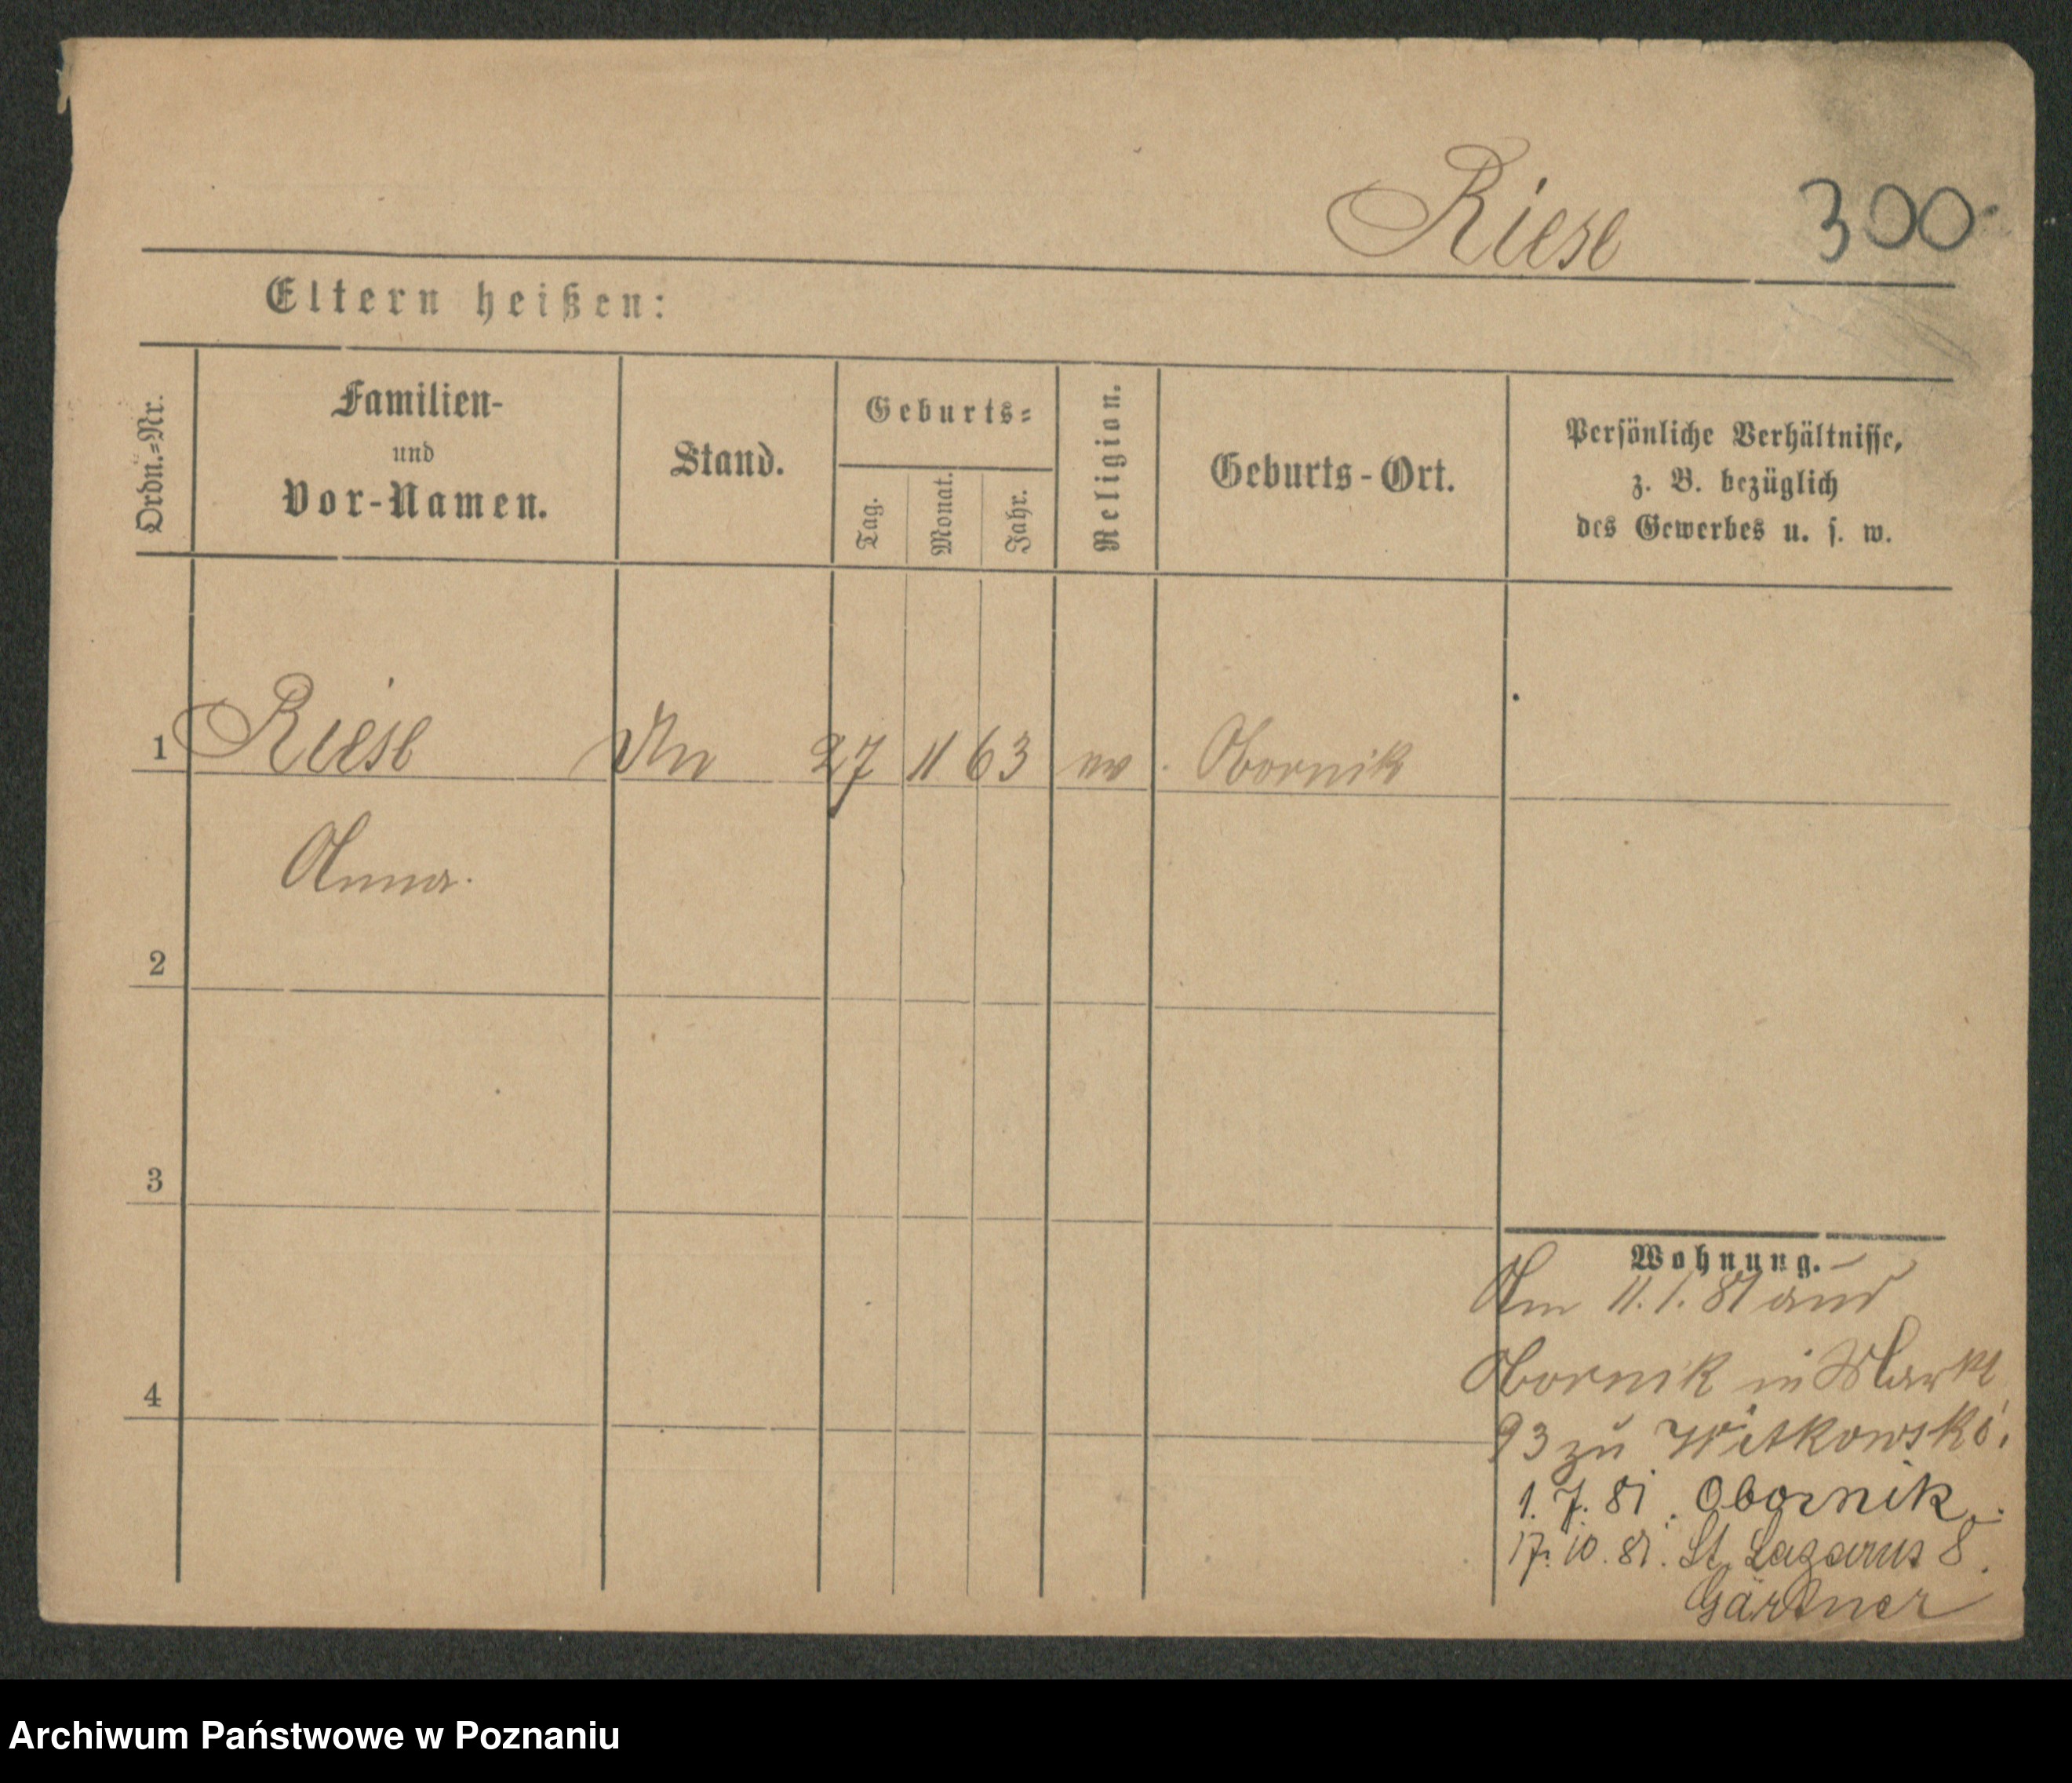 Riese 300
Eltern heißen:
Ordn.-Nr. Familien- und Vor-Namen. Stand. Geburts= Tag. Monat. Jahr. Religion. Geburts-Ort. Persönliche Verhältnisse, z. B. bezüglich des Gewerbes u. s. w.
1 Riese 27 11 63 Obornik
Anna.
2
3
4
Wohnung.
Am 11. 1. 81 aus
Obornik in Markt
93 zu Witkowski.
1. 7. 81. Obornik.
17. 10. 81. St. Lazarus 8.
Gärtner
Archiwum Państwowe w Poznaniu